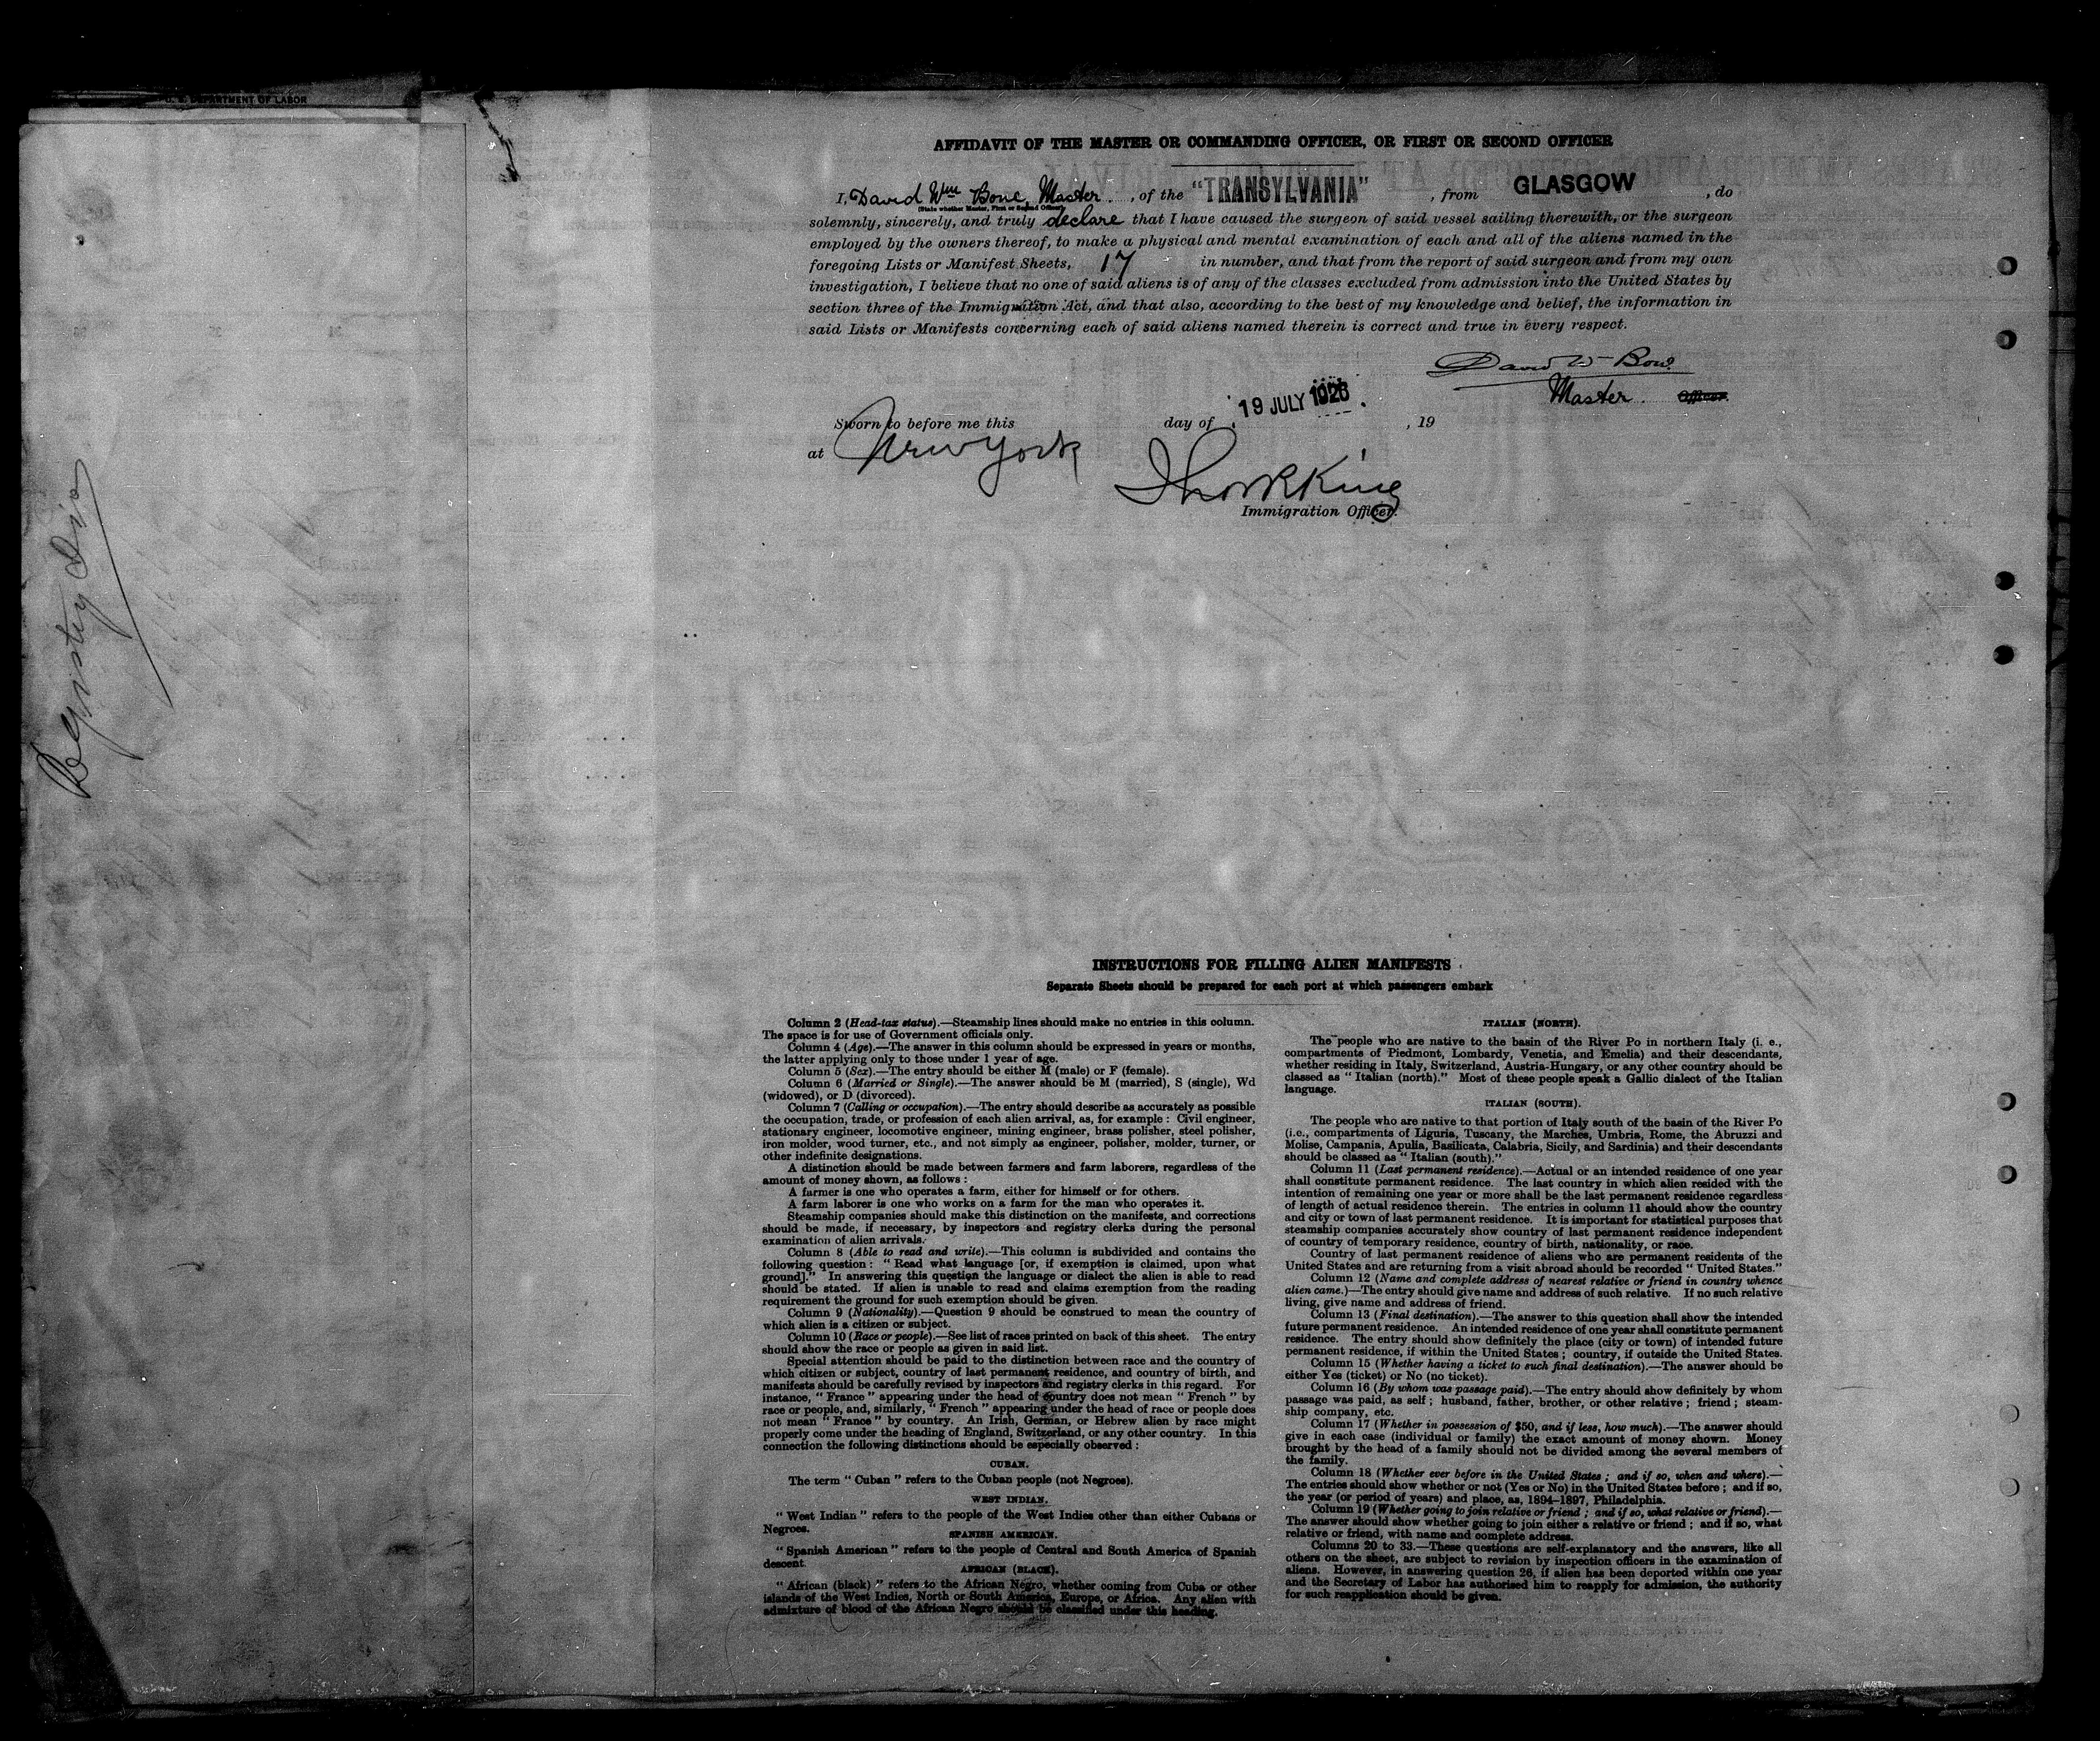 U. S. DEPARTMENT OF LABOR
Registry Div
AFFIDAVIT OF THE MASTER OR COMMANDING OFFICER, OR FIRST OR SECOND OFFICER
I, David Wm Bone, Master, of the "TRANSYLVANIA", from GLASGOW, do
(State whether Master, First or Second Officer)
solemnly, sincerely, and truly declare that I have caused the surgeon of said vessel sailing therewith, or the surgeon
employed by the owners thereof, to make a physical and mental examination of each and all of the aliens named in the
foregoing Lists or Manifest Sheets, 17 in number, and that from the report of said surgeon and from my own
investigation, I believe that no one of said aliens is of any of the classes excluded from admission into the United States by
section three of the Immigration Act, and that also, according to the best of my knowledge and belief, the information in
said Lists or Manifests concerning each of said aliens named therein is correct and true in every respect.
David W Bone
Master Officer.
19 JULY 1926
Sworn to before me this day of , 19
at New York
Immigration Officer.
INSTRUCTIONS FOR FILLING ALIEN MANIFESTS
Separate Sheets should be prepared for each port at which passengers embark
Column 2 (Head-tax status).—Steamship lines should make no entries in this column.
The space is for use of Government officials only.
Column 4 (Age).—The answer in this column should be expressed in years or months,
the latter applying only to those under 1 year of age.
Column 5 (Sex).—The entry should be either M (male) or F (female).
Column 6 (Married or Single).—The answer should be M (married), S (single), Wd
(widowed), or D (divorced).
Column 7 (Calling or occupation).—The entry should describe as accurately as possible
the occupation, trade, or profession of each alien arrival, as, for example : Civil engineer,
stationary engineer, locomotive engineer, mining engineer, brass polisher, steel polisher,
iron molder, wood turner, etc., and not simply as engineer, polisher, molder, turner, or
other indefinite designations.
A distinction should be made between farmers and farm laborers, regardless of the
amount of money shown, as follows :
A farmer is one who operates a farm, either for himself or for others.
A farm laborer is one who works on a farm for the man who operates it.
Steamship companies should make this distinction on the manifests, and corrections
should be made, if necessary, by inspectors and registry clerks during the personal
examination of alien arrivals.
Column 8 (Able to read and write).—This column is subdivided and contains the
following question : " Read what language [or, if exemption is claimed, upon what
ground]." In answering this question the language or dialect the alien is able to read
should be stated. If alien is unable to read and claims exemption from the reading
requirement the ground for such exemption should be given.
Column 9 (Nationality).—Question 9 should be construed to mean the country of
which alien is a citizen or subject.
Column 10 (Race or people).—See list of races printed on back of this sheet. The entry
should show the race or people as given in said list.
Special attention should be paid to the distinction between race and the country of
which citizen or subject, country of last permanent residence, and country of birth, and
manifests should be carefully revised by inspectors and registry clerks in this regard. For
instance, " France " appearing under the head of country does not mean " French " by
race or people, and, similarly, " French " appearing under the head of race or people does
not mean " France " by country. An Irish, German, or Hebrew alien by race might
properly come under the heading of England, Switzerland, or any other country. In this
connection the following distinctions should be especially observed :
CUBAN.
The term " Cuban " refers to the Cuban people (not Negroes).
WEST INDIAN.
" West Indian " refers to the people of the West Indies other than either Cubans or
Negroes.
SPANISH AMERICAN.
" Spanish American " refers to the people of Central and South America of Spanish
descent.
AFRICAN (BLACK).
" African (black) " refers to the African Negro, whether coming from Cuba or other
islands of the West Indies, North or South America, Europe, or Africa. Any alien with
admixture of blood of the African Negro should be classified under this heading.
ITALIAN (NORTH).
The people who are native to the basin of the River Po in northern Italy (i. e.,
compartments of Piedmont, Lombardy, Venetia, and Emelia) and their descendants,
whether residing in Italy, Switzerland, Austria-Hungary, or any other country should be
classed as " Italian (north)." Most of these people speak a Gallic dialect of the Italian
language.
ITALIAN (SOUTH).
The people who are native to that portion of Italy south of the basin of the River Po
(i.e., compartments of Liguria, Tuscany, the Marches, Umbria, Rome, the Abruzzi and
Molise, Campania, Apulia, Basilicata, Calabria, Sicily, and Sardinia) and their descendants
should be classed as " Italian (south)."
Column 11 (Last permanent residence).—Actual or an intended residence of one year
shall constitute permanent residence. The last country in which alien resided with the
intention of remaining one year or more shall be the last permanent residence regardless
of length of actual residence therein. The entries in column 11 should show the country
and city or town of last permanent residence. It is important for statistical purposes that
steamship companies accurately show country of last permanent residence independent
of country of temporary residence, country of birth, nationality, or race.
Country of last permanent residence of aliens who are permanent residents of the
United States and are returning from a visit abroad should be recorded " United States."
Column 12 (Name and complete address of nearest relative or friend in country whence
alien came.)—The entry should give name and address of such relative. If no such relative
living, give name and address of friend.
Column 13 (Final destination).—The answer to this question shall show the intended
future permanent residence. An intended residence of one year shall constitute permanent
residence. The entry should show definitely the place (city or town) of intended future
permanent residence, if within the United States ; country, if outside the United States.
Column 15 (Whether having a ticket to such final destination).—The answer should be
either Yes (ticket) or No (no ticket).
Column 16 (By whom was passage paid).—The entry should show definitely by whom
passage was paid, as self ; husband, father, brother, or other relative ; friend ; steam-
ship company, etc.
Column 17 (Whether in possession of $50, and if less, how much).—The answer should
give in each case (individual or family) the exact amount of money shown. Money
brought by the head of a family should not be divided among the several members of
the family.
Column 18 (Whether ever before in the United States ; and if so, when and where).—
The entries should show whether or not (Yes or No) in the United States before ; and if so,
the year (or period of years) and place, as, 1894–1897, Philadelphia.
Column 19 (Whether going to join relative or friend ; and if so, what relative or friend).—
The answer should show whether going to join either a relative or friend ; and if so, what
relative or friend, with name and complete address.
Columns 20 to 33.—These questions are self-explanatory and the answers, like all
others on the sheet, are subject to revision by inspection officers in the examination of
aliens. However, in answering question 26, if alien has been deported within one year
and the Secretary of Labor has authorised him to reapply for admission, the authority
for such reapplication should be given.